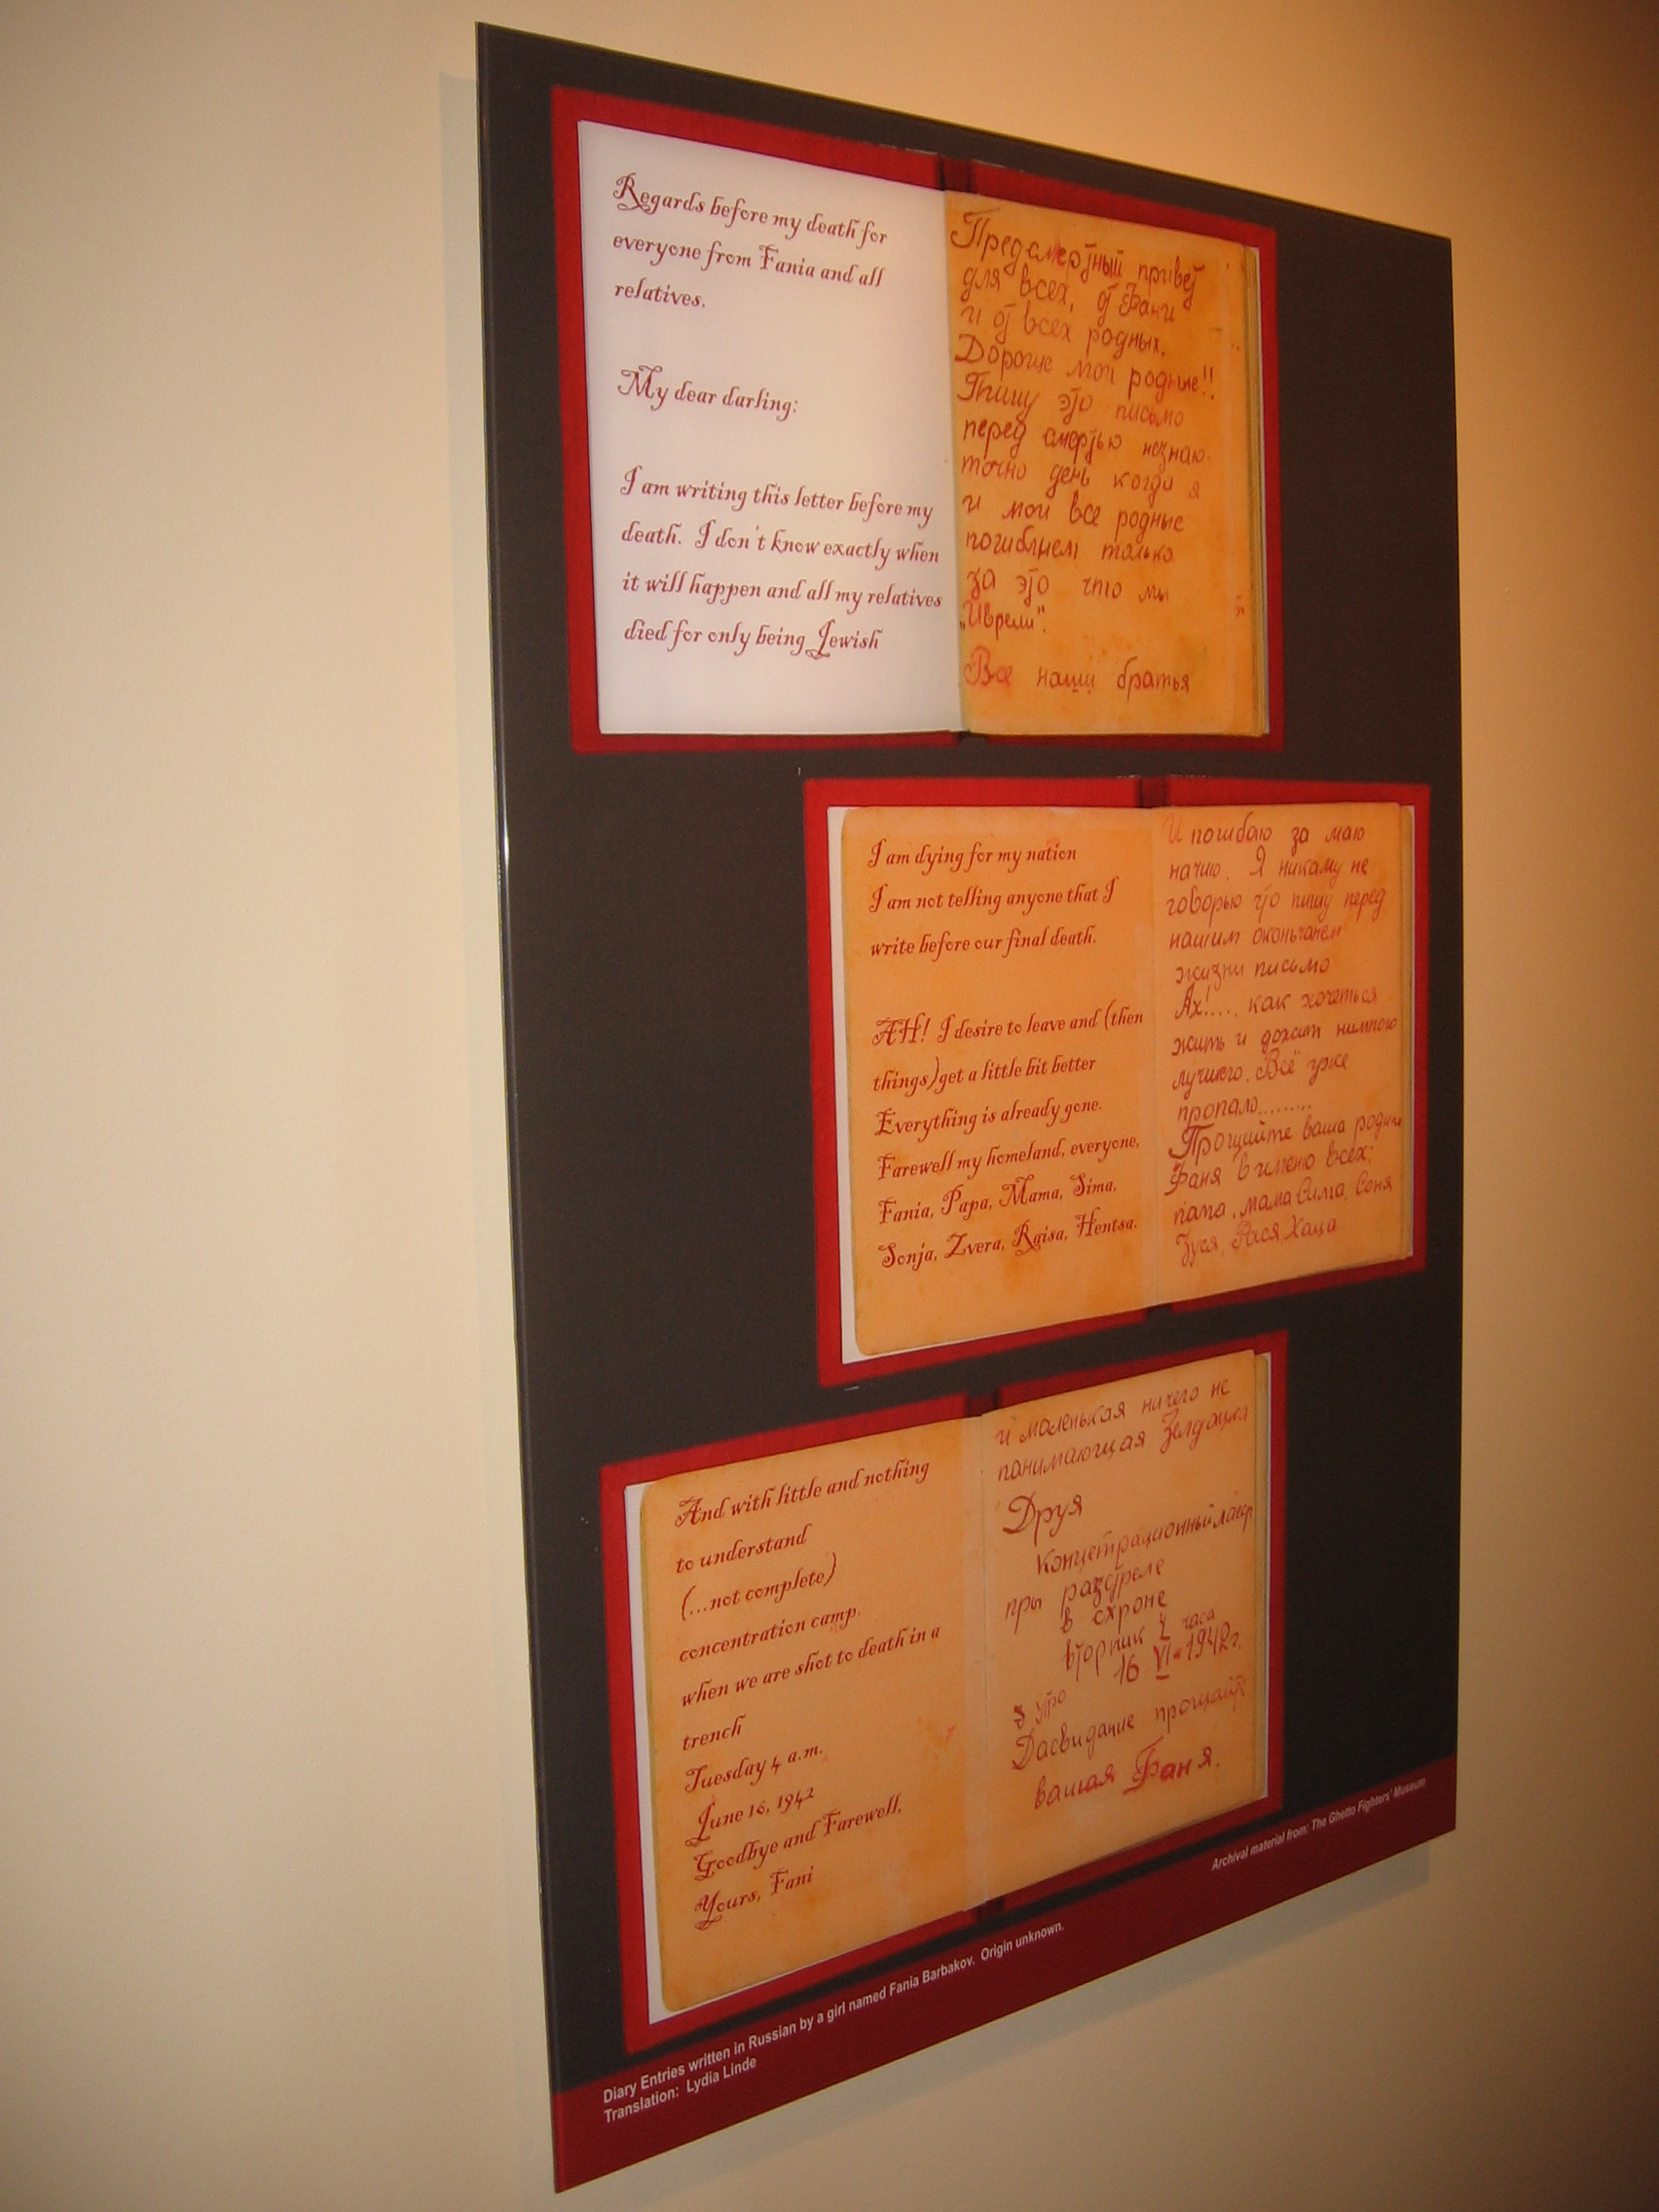 Regards before my death for
everyone from Fania and all
relatives.
My dear darling:
I am writing this letter before my
death. I don't know exactly when
it will happen and all my relatives
died for only being Jewish
Предсмертный привет
для всех, от Фани
и от всех родных.
Дорогие мои родные!!
Пишу это письмо
перед смертью незнаю
точно день когда я
и мои все родные
погибнем только
за это что мы
„Иврели".
Все наши братья
I am dying for my nation
I am not telling anyone that I
write before our final death.
AH! I desire to leave and (then
things) get a little bit better
Everything is already gone.
Farewell my homeland, everyone,
Fania, Papa, Mama, Sima,
Sonja, Zvera, Raisa, Hentsa.
И погибаю за маю
нацию. Я никаму не
говорью что пишу перед
нашим оконьчанем
жизни письмо
Ах!.... как хочеться
жить и дожит нимного
лучшего. Всё уже
пропало.........
Прощийте ваша родине
Фаня в имено всех:
папа, мама Сима, Соня
Зуся, Рася, Хаца
And with little and nothing
to understand
(...not complete)
concentration camp.
when we are shot to death in a
trench
Tuesday 4 a.m.
June 16, 1942
Goodbye and Farewell,
Yours, Fani
и маленькая ничего не
панимающая Зелдацка
Друя
Концетрационный лагер
пры разстреле
в схроне
вторник 4 часа
16 VI-1942г.
з утро
Дасвидание прощайте
вашая Фаня.
Archival material from: The Ghetto Fighters' Museum
Diary Entries written in Russian by a girl named Fania Barbakov. Origin unknown.
Translation: Lydia Linde